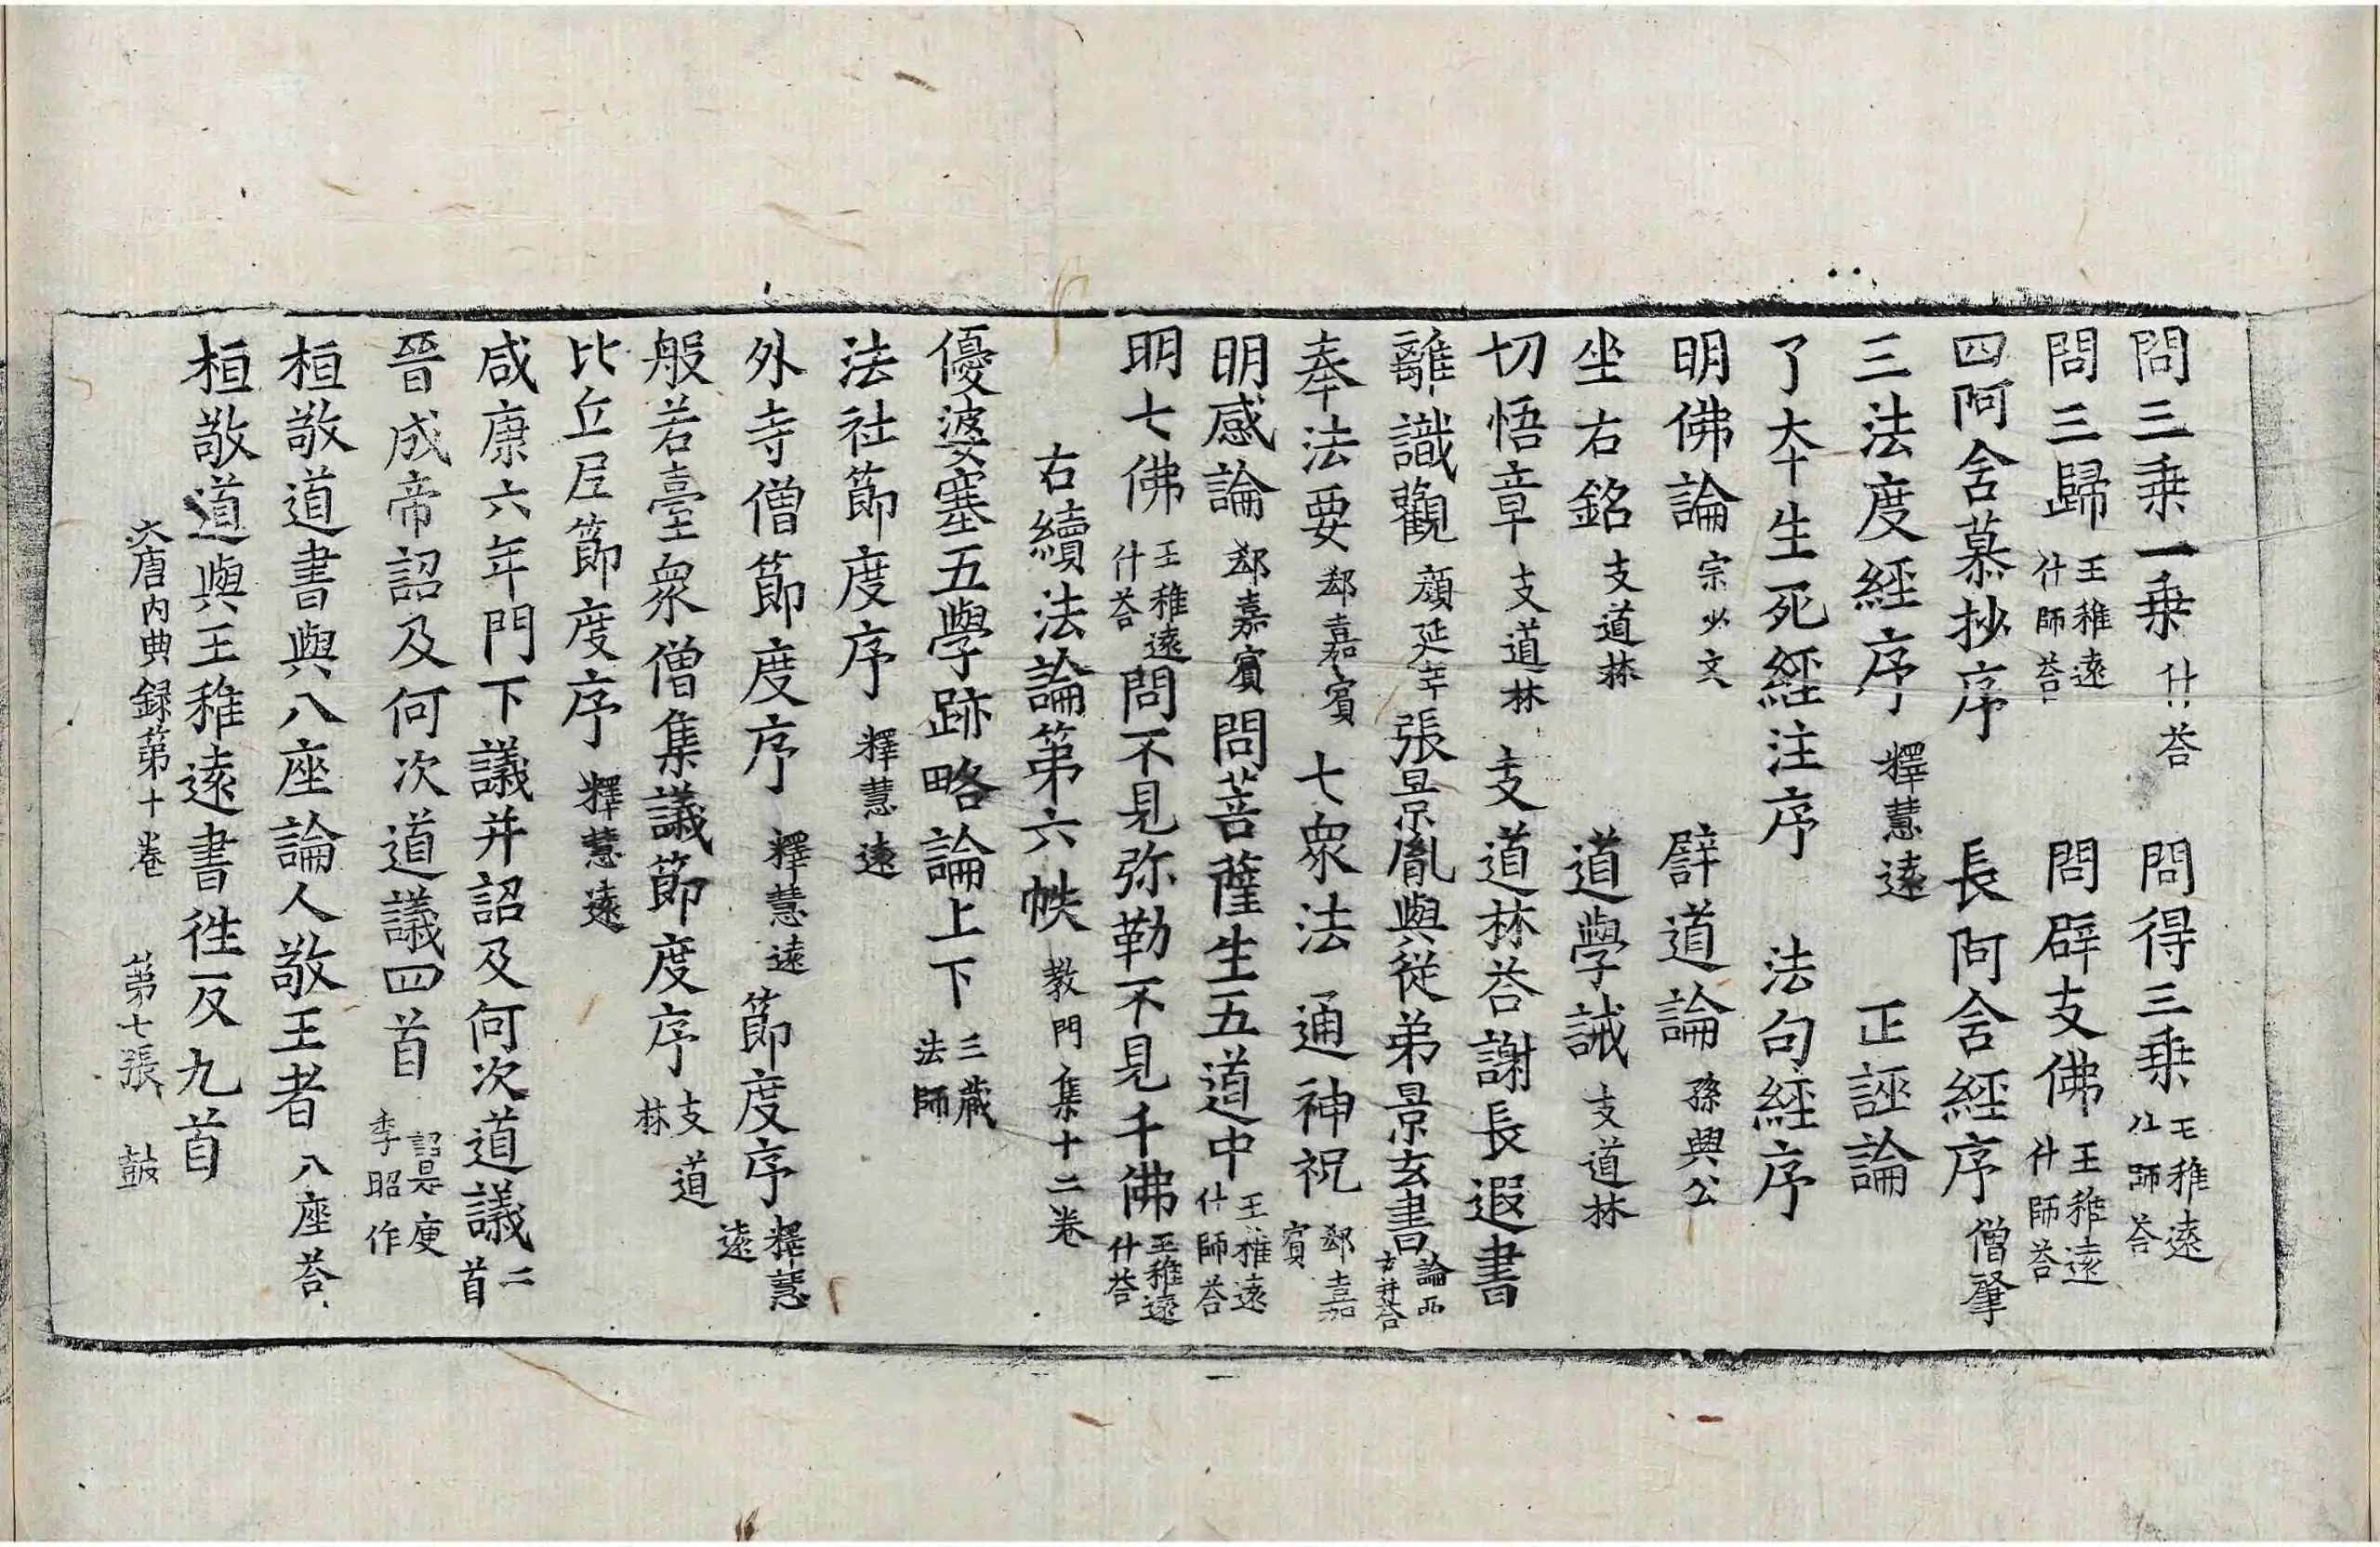 問三乗一乗什荅　問得三乗王稚遠什師荅
問三歸王稚遠什師荅　問辟支佛王稚遠什師荅
四阿含慕抄序　長阿含經序僧肇
三法度經序釋慧遠　正誣論
了夲生死經注序　法句經序
明佛論宗少文　譬道論孫興公
坐右銘支道林　道學誡支道林
切悟章支道林　支道林荅謝長遐書
離識觀顔延年　張景胤與從弟景玄書論西玄并荅
奉法要郄嘉賓　七衆法　通神祝郄嘉賓
明感論郄嘉賓　問菩薩生五道中王稚遠什師荅
明七佛王稚遠什荅　問不見弥勒不見千佛王稚遠什荅
右續法論第六帙教門集十二卷
優婆塞五學跡略論上下三藏法師
法社節度序釋慧遠
外寺僧節度序釋慧遠　節度序釋慧遠
般若臺衆僧集議節度序支道林
比丘尼節度序釋慧遠
咸康六年門下議并詔及何次道議二首
晉成帝詔及何次道議四首詔是庾季昭作
桓敬道書與八座論人敬王者八座荅
桓敬道與王稚遠書徃反九首
大唐内典録第十卷　第七張　鼓